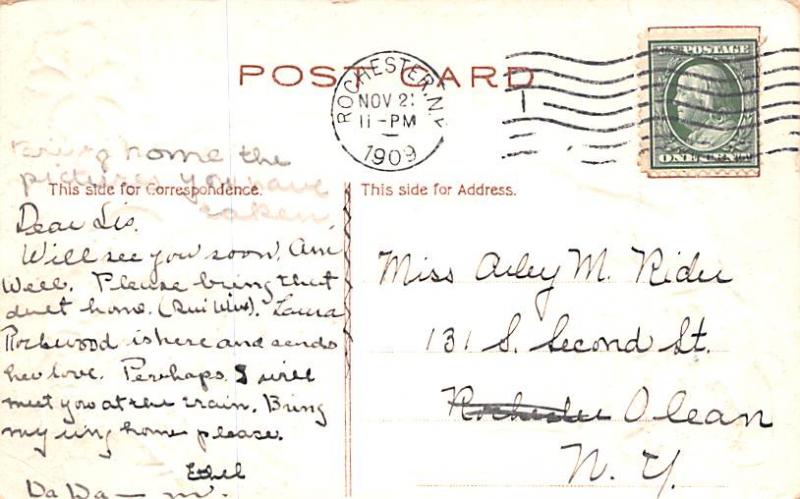 POST CARD
ROCHESTER, N.Y.
NOV 2
11-PM
1909
U.S. POSTAGE
ONE CENT
bring home the
pictures you have
taken.
This side for Correspondence.
This side for Address.
Dear Sis.
Will see you soon. Am
Well. Please bring that
duet home. Laura
Rockwood is here and sends
her love. Perhaps I will
meet you at the train. Bring
my ring home please.
Ethel
Da Da — m.
Miss Arley M. Rider
131 S. Second St.
Rochester Olean
N. Y.